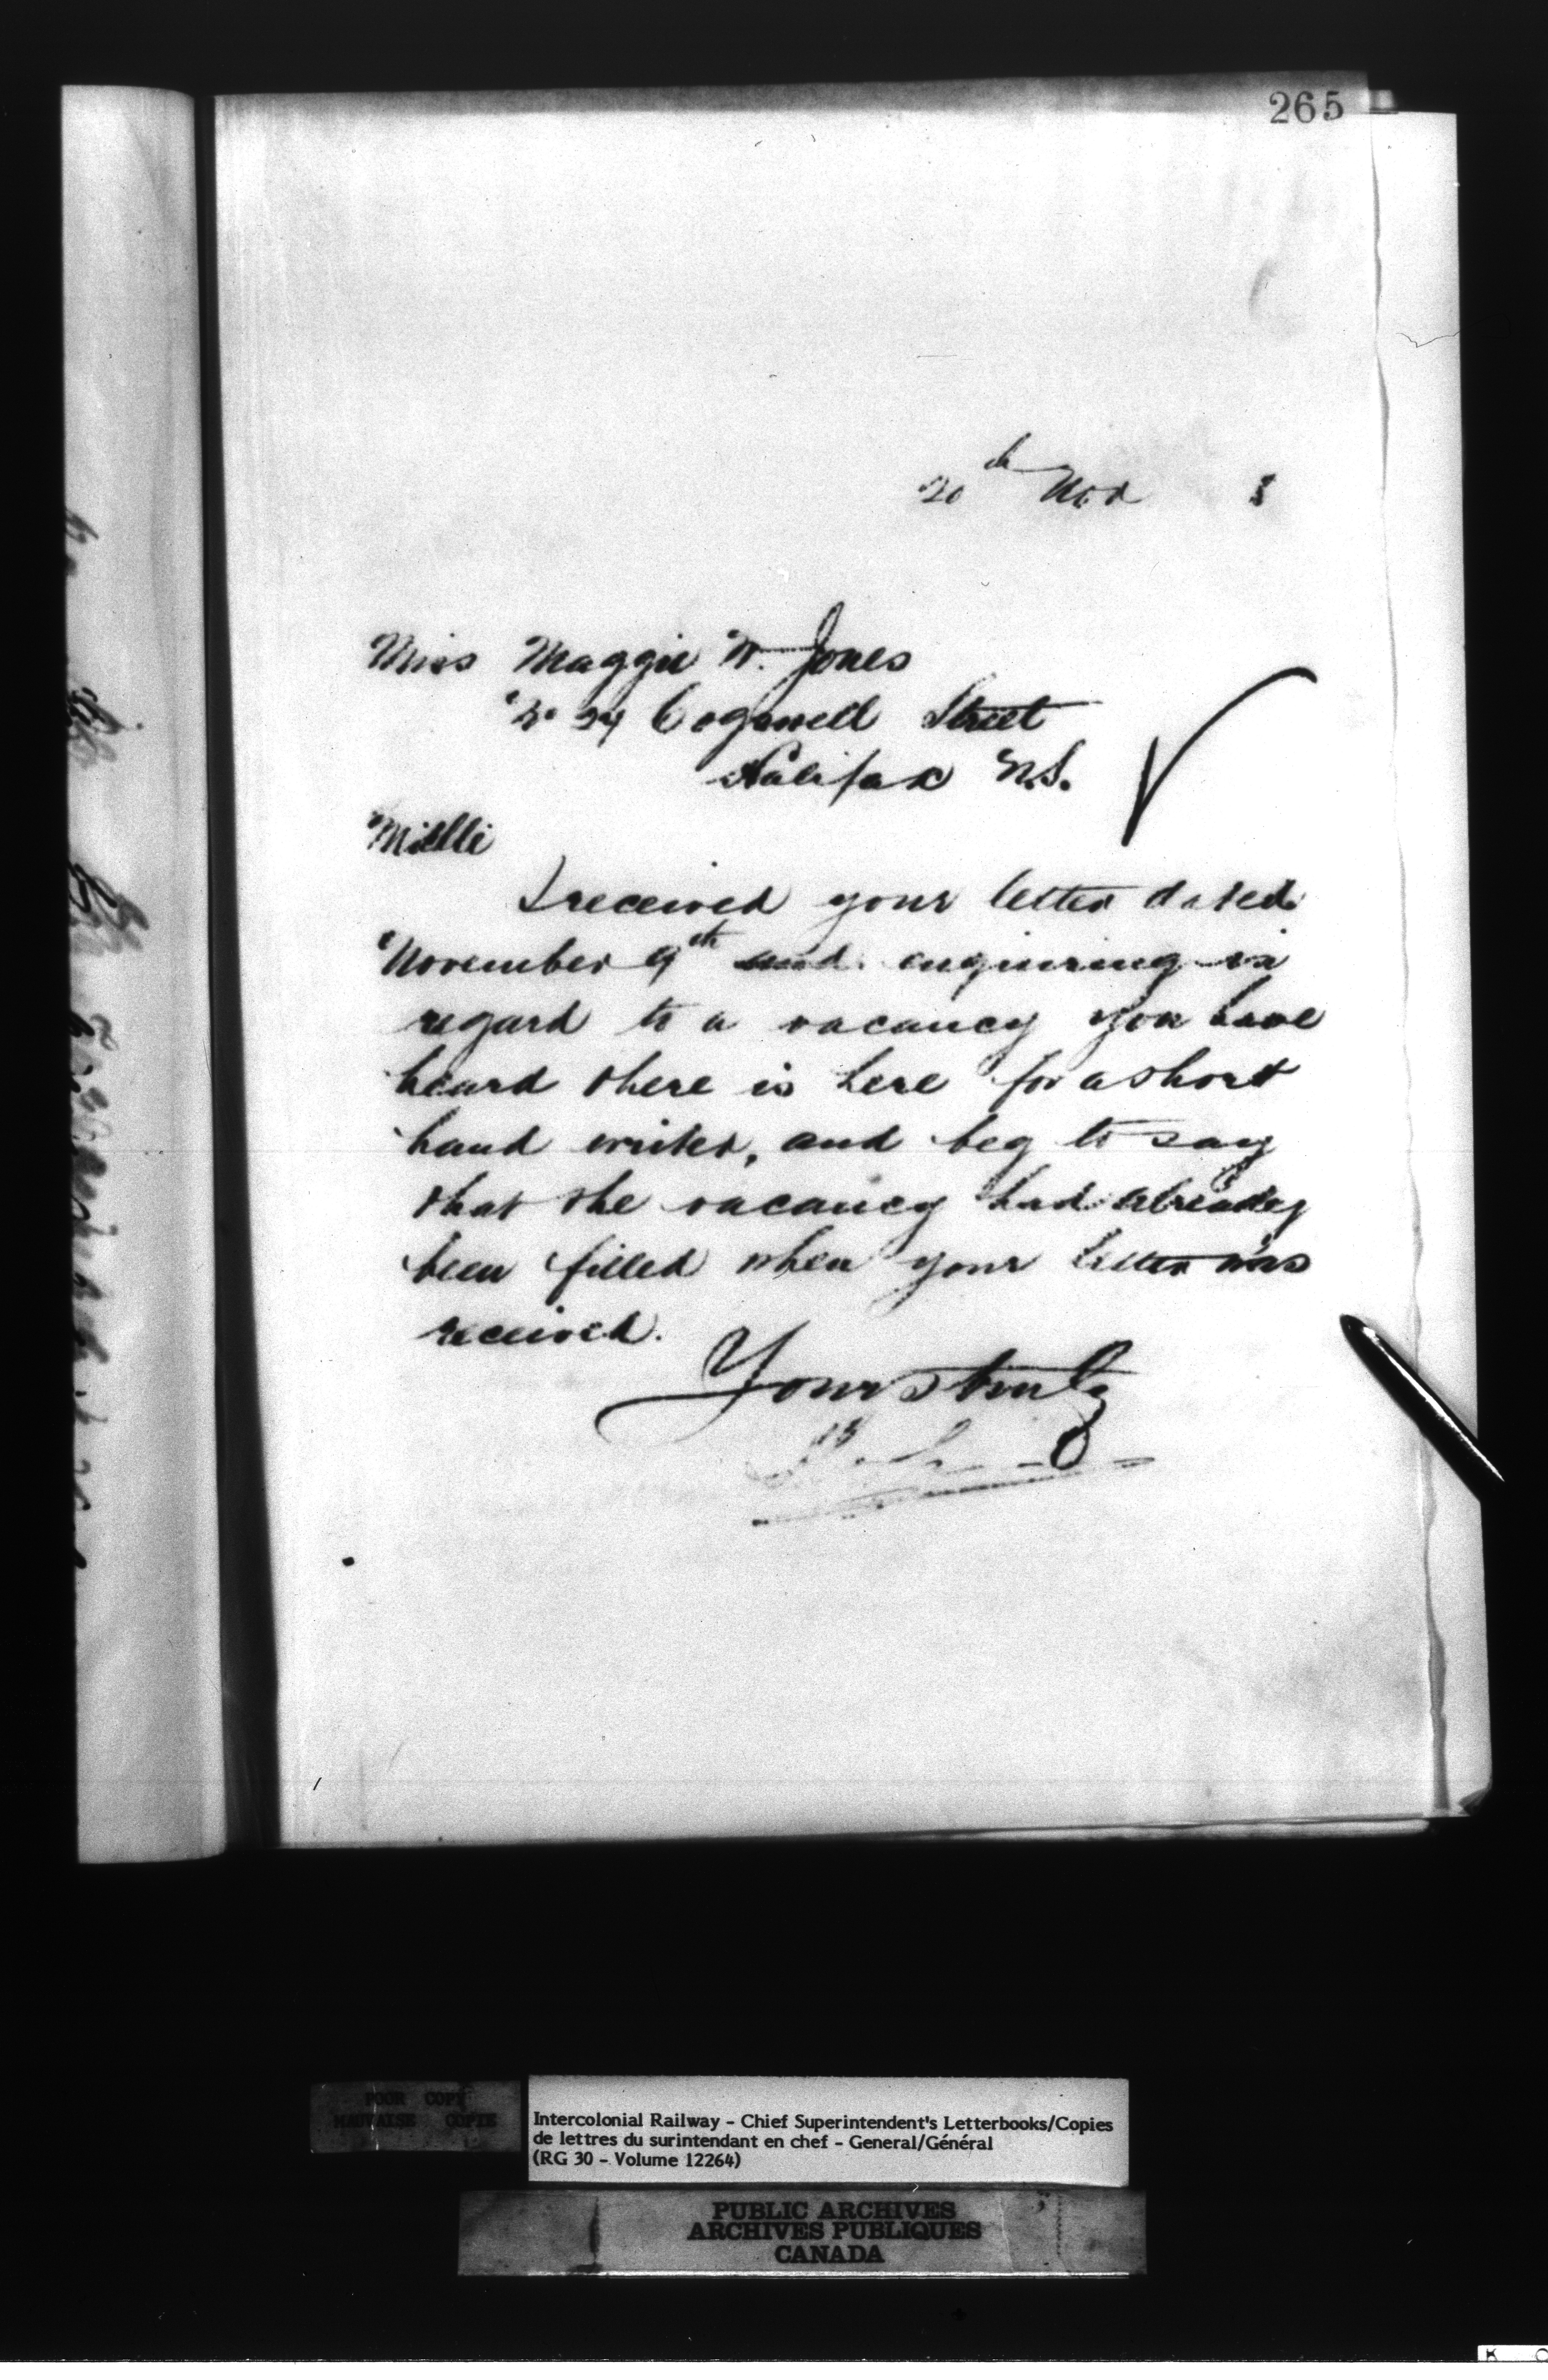 265
20th Nov 8
Miss Maggie W. Jones
No 34 Cogswell Street
Halifax N.S.
Mislle
I received your letter dated
November 9th and enquiring in
regard to a vacancy you have
heard there is here for a short
hand writer, and beg to say
that the vacancy had already
been filled when your letter was
received.
Yours truly
POOR COPY
MAUVAISE COPIE
Intercolonial Railway - Chief Superintendent's Letterbooks/Copies
de lettres du surintendant en chef - General/Général
(RG 30 - Volume 12264)
PUBLIC ARCHIVES
ARCHIVES PUBLIQUES
CANADA